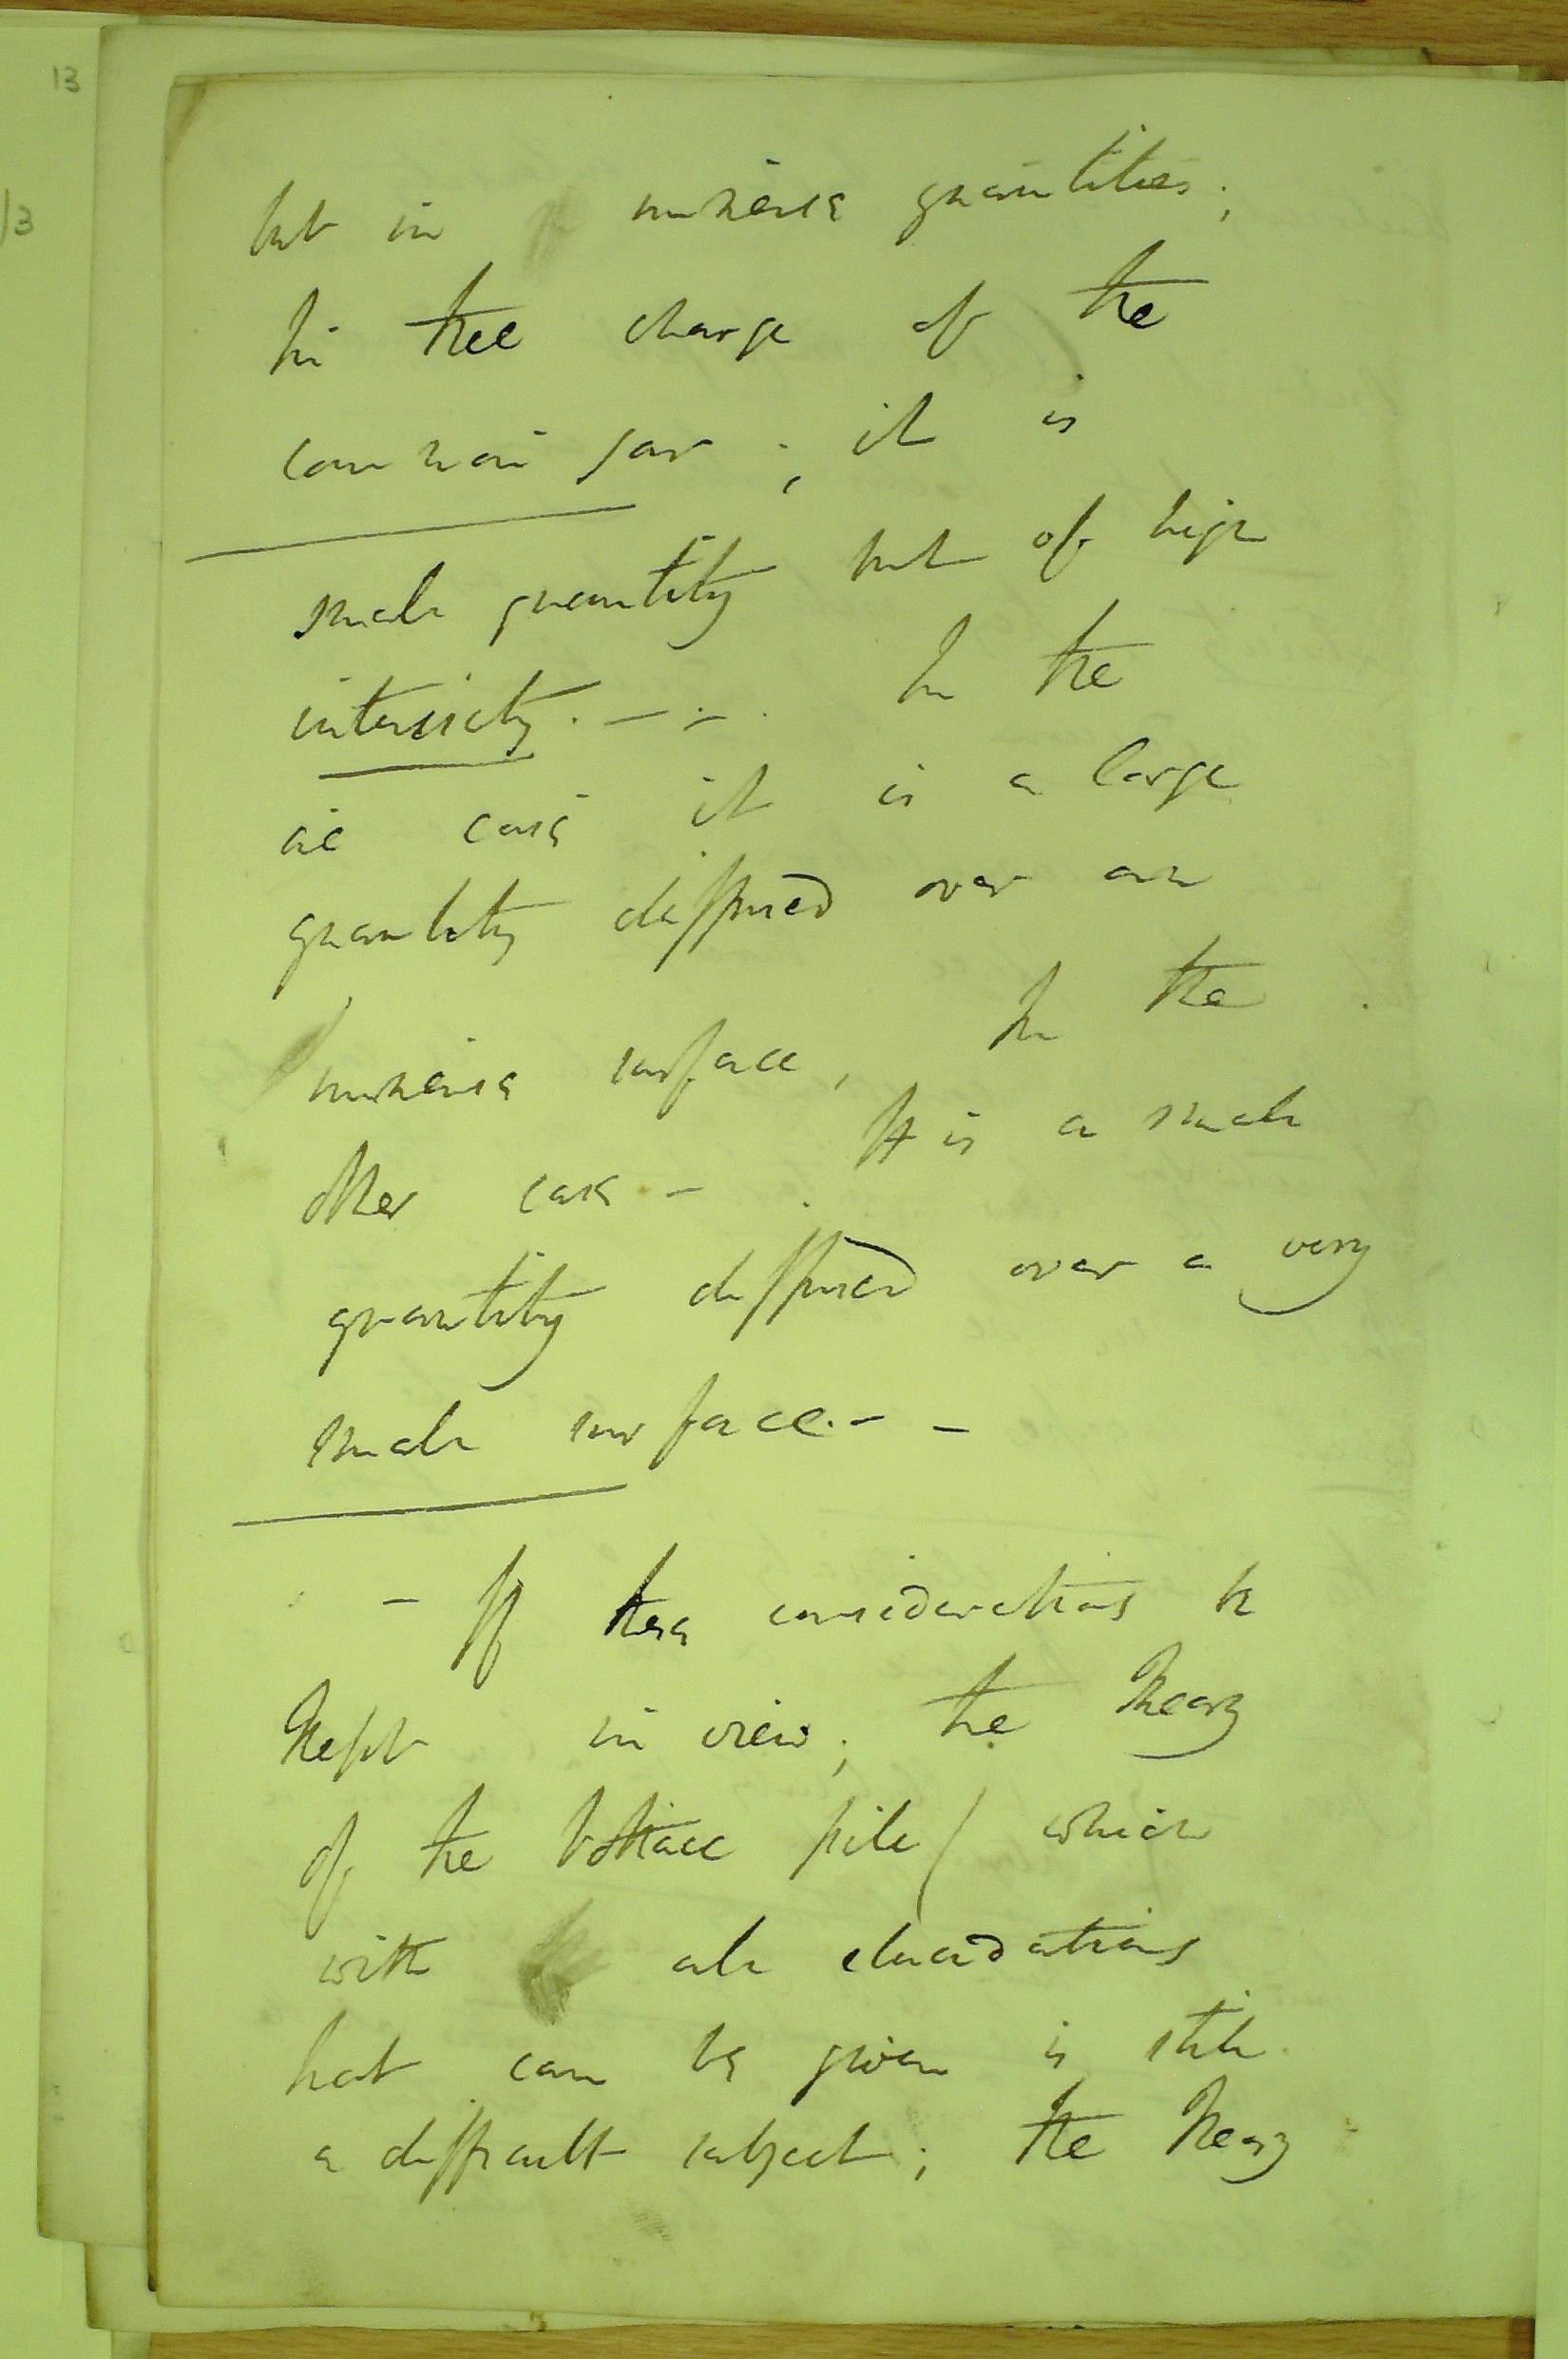 13
/3
but in immense quantities;
In the charge of the
common jar; it is
small quantity but of high
intensity. — - In the
one case it is a large
quantity diffused over an
immense surface, In the
other case - It is a small
quantity diffused over a very
small surface. - -
- If these considerations be
kept in view; the theory
of the Voltaic pile (which
with all elucidations
that can be given is still
a difficult subject; the theory